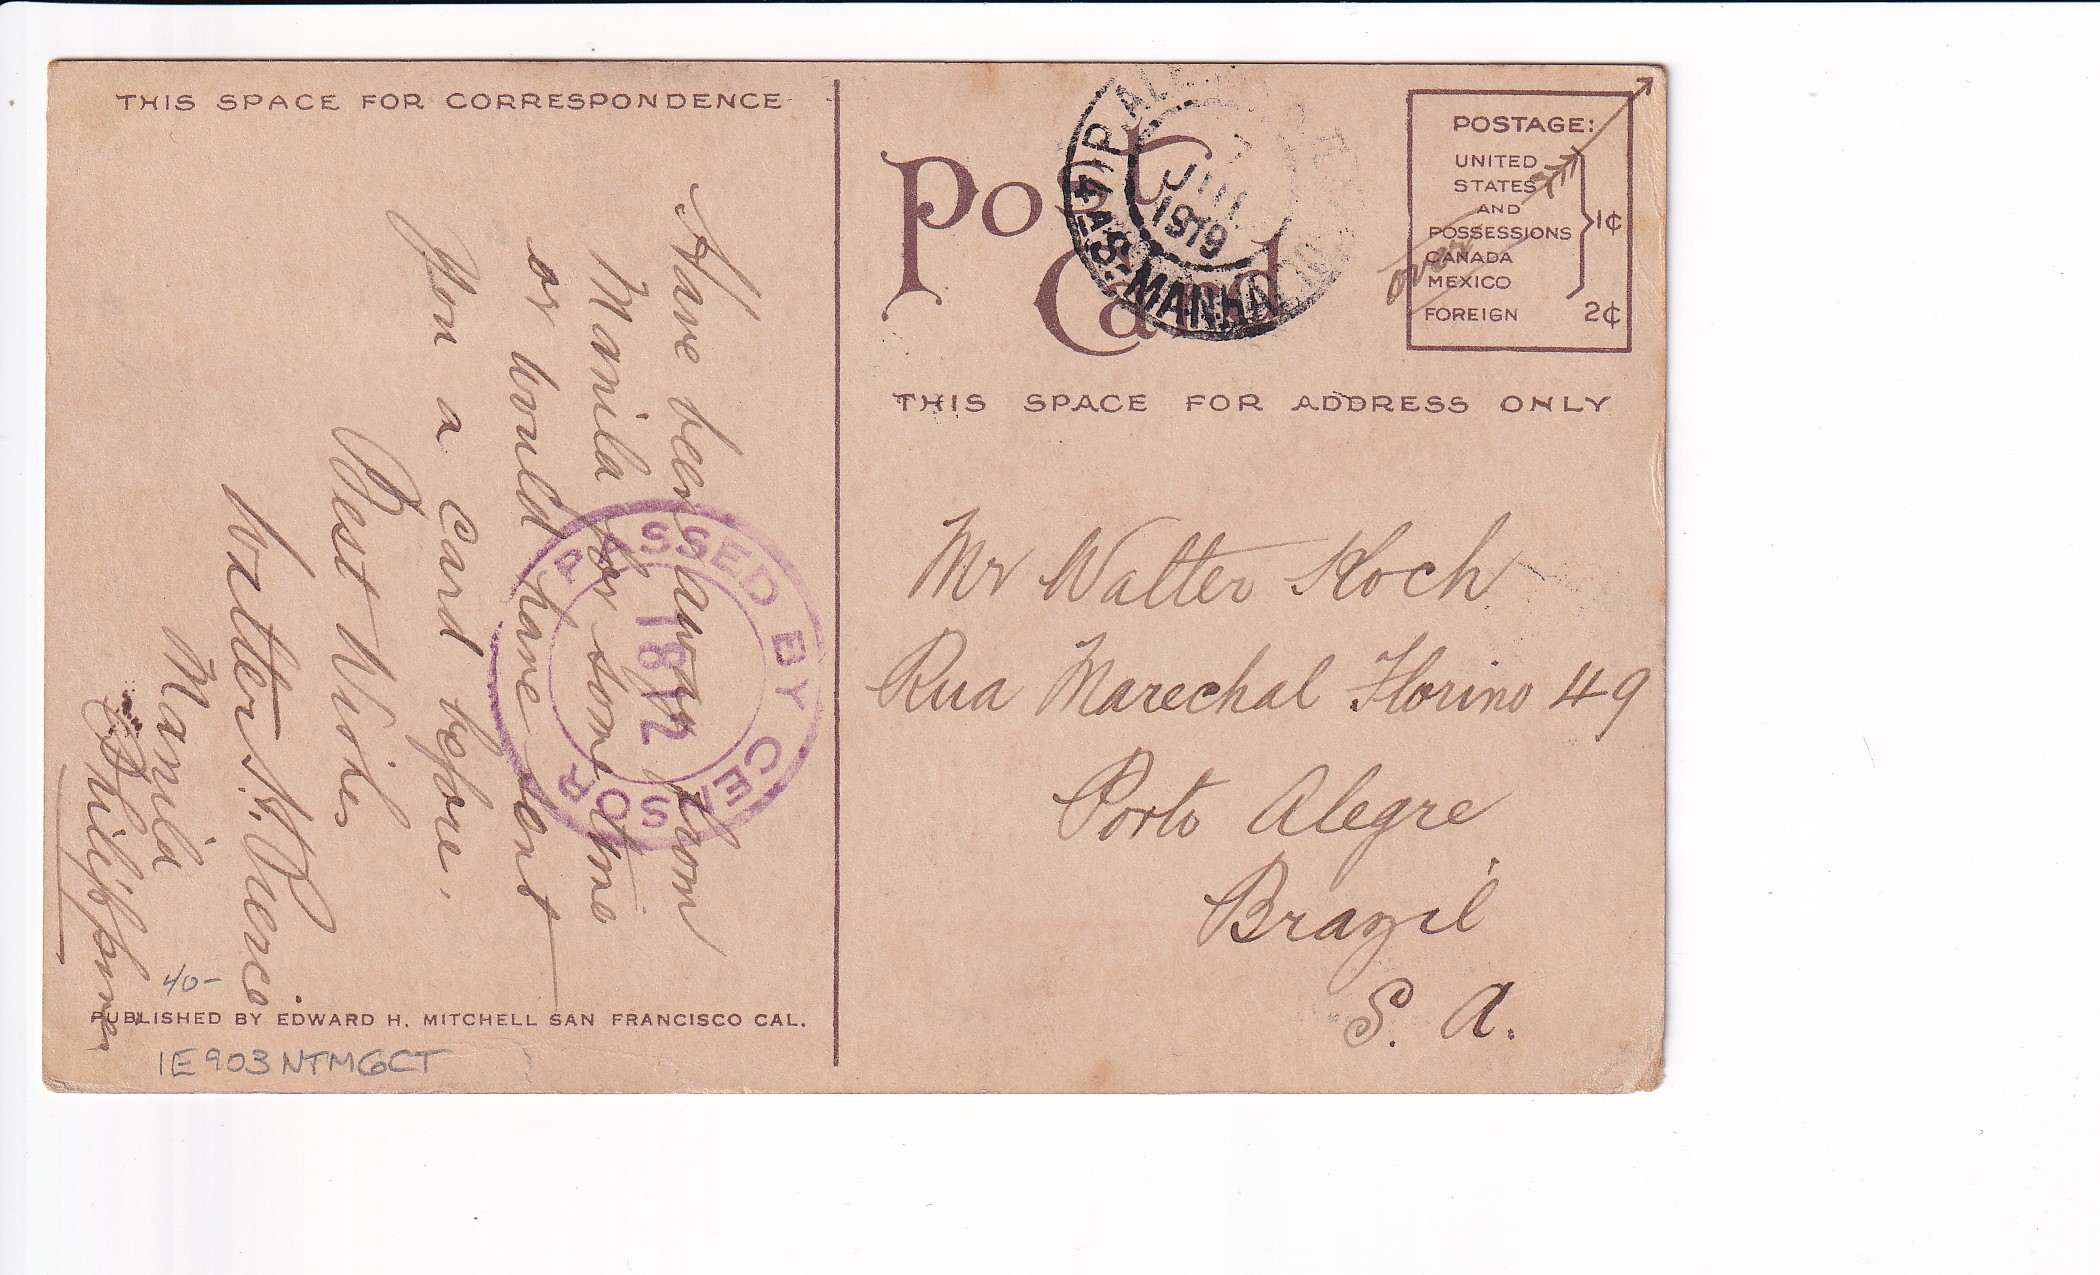 THIS SPACE FOR CORRESPONDENCE
Have been away from
Manila for some time
or would have sent
you a card before.
Best Wishes
Walter S.
Manila
Philippines
40-
PUBLISHED BY EDWARD H. MITCHELL SAN FRANCISCO CAL.
1E903NTMGCT
PASSED BY CENSOR
1812
Post
Card
P. ALE
7
JUN
1919
4 AS 9-MANHÃ
POSTAGE:
UNITED
STATES
AND
POSSESSIONS
CANADA
MEXICO
1¢
FOREIGN 2¢
over
THIS SPACE FOR ADDRESS ONLY
Mr Walter Koch
Rua Marechal Florino 49
Porto Alegre
Brazil
S. A.